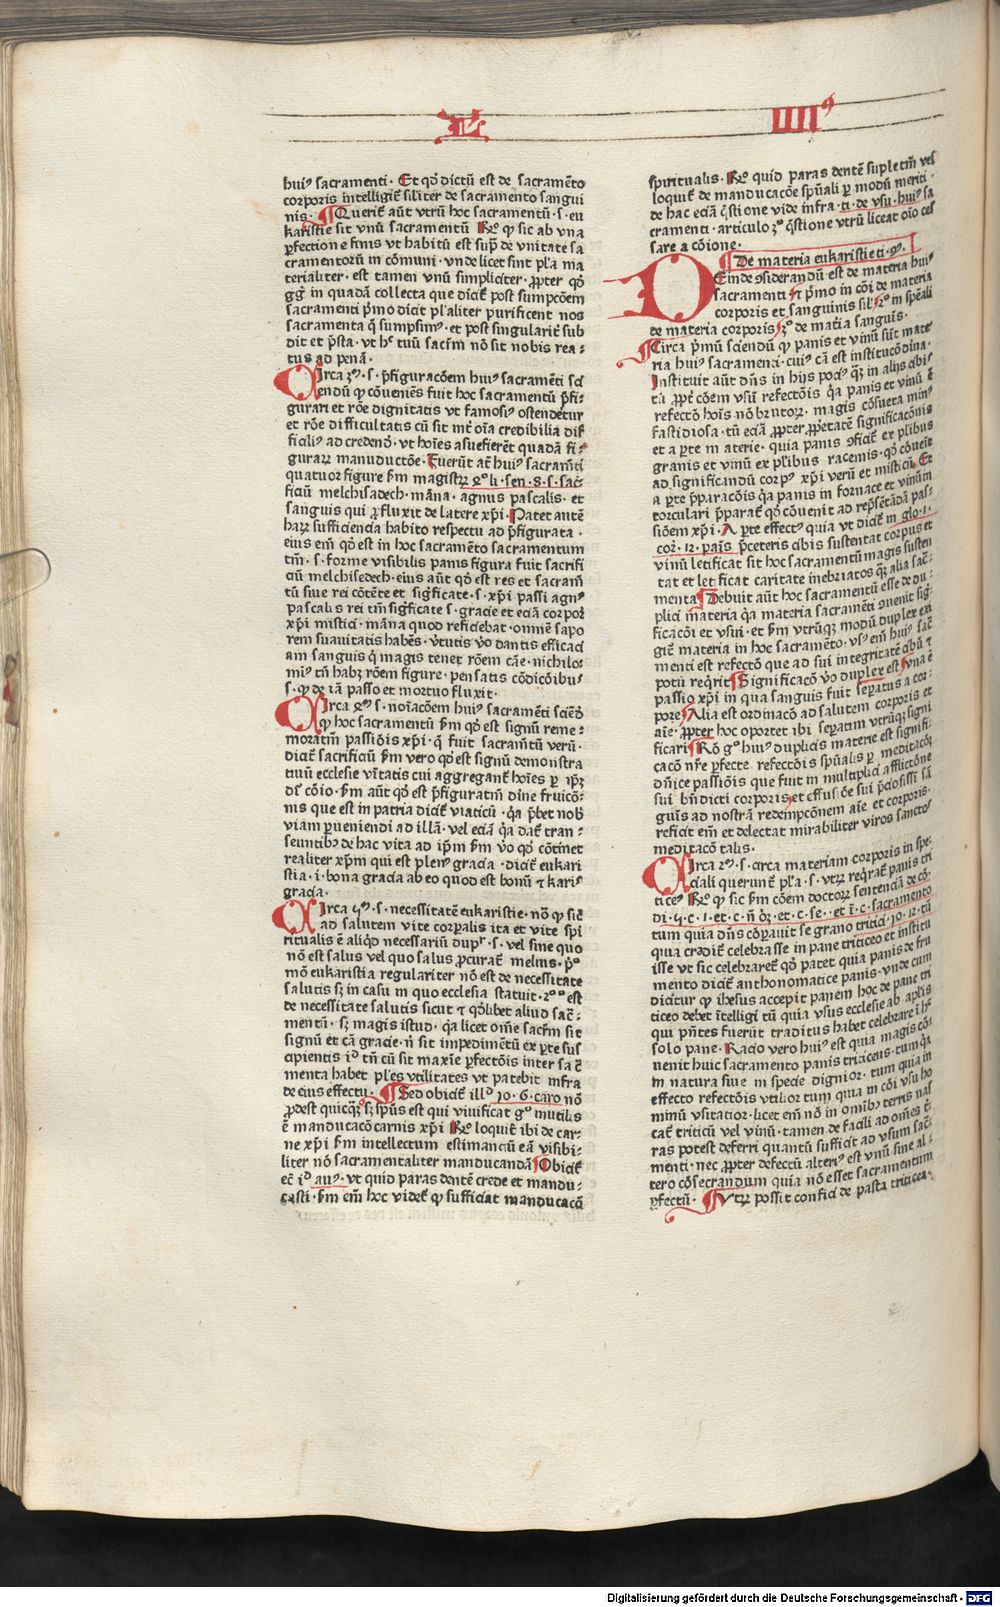 L IIII⁹
hui⁹ sacramenti · Et qđ dictū est de sacramēto
corporis intelligit̄ sil̄iter de sacramento sangui
nis · Querit̄ aūt vtrū hoc sacramentū · s · eu
karistie sit vnū sacramentū R̄o ꝙ sic ab vna
ꝑfectione finis vt habitū est sup̄ de vnitate sa
cramentorū in cōmuni · vnde licet sint pl̄a ma
terialiter · est tamen vnū simpliciter · ꝓpter qđ
gg̅ in quadā collecta que dicit̄ post sumpcōem
sacramenti p̄mo dicit pl̄aliter purificent nos
sacramenta q̄ sumpsim⁹ · et post singularit̄ sub
dit et p̄sta · vt h͛ tuū sacr̄m nō sit nobis rea ⸗
tus ad penā ·
Circa 3ᵐ · s · p̄figuracōem hui⁹ sacramēti sci
endū ꝙ cōueniēs fuit hoc sacramentū p̄fi ⸗
gurari et rōe dignitatis vt famosi⁹ ostendetur
et rōe difficultatis cū sit mr̄ oīa credibilia dif
ficili⁹ ad credendᵒ · vt hoīes asuefierēt quadā fi ⸗
guraꝝ manuductōe · Fuerūt at̄ hui⁹ sacram̄ti
quatuor figure scḋm magistꝝ 4ᵒ li · sen · 8 · s · sac̄
ficiū melchisadech · māna · agnus pascalis · et
sanguis qui ꝓfluxit de latere xp̄i · Patet autē
haꝝ sufficiencia habito respectu ad p̄figurata ·
eius em̄ qđ est in hoc sacramēto sacramentum
tm̄ · s · forme visibilis panis figura fuit sacrifi
ciū melchisedech · eius aūt qđ est res et sacram̄
tū siue rei cōtēte et sigficate · s · xp̄i passi agn⁹
pascalis rei tm̄ sigficate s · gracie et eciā corpoꝝ
xp̄i mistici · māna quod reficiebat · omnē sapo
rem suauitatis habēs · v̄tutis v̊o dantis efficaci
am sanguis q̄ magis tenet rōem cāe · nichilo ⸗
mi⁹ tn̄ habꝫ rōem figure · pensatis cōdicōib⁹
s · ꝙ de iā passo et mortuo fluxit ·
Circa 4ᵐ s · noīacōem hui⁹ sacramēti sciēdᵒ
ꝙ hoc sacramentū scḋm qđ est signū reme ⸗
moratīm passiōis xp̄i · q̄ fuit sacram̄tū verū ·
dicit̄ sacrificiū scḋm vero qđ est signū demonstra
tiuū ecclesie vn̄tatis cui aggregant̄ hoīes ꝑ ip̄ꝫ
dr̄ cōio · scḋm aūt qđ est p̄figuratīm dīne fruicō ⸗
nis que est in patria dicit̄ viaticū · q̄a p̄bet nob̄
viam ꝑueniendi ad illā · vel eciā q̄a dat̄ tran ⸗
seuntib⁹ de hac vita ad ip̄m scḋm v̊o qđ cōtinet
realiter xp̄m qui est plen⁹ gracia · dicit̄ eukari
stia · i · bona gracia ab eo quod est bonū et karis
gracia ·
Circa 5ᵐ · s · necessitatē eukaristie · nō ꝙ sic̄
ad salutem vite corꝑalis ita et vite spi
ritualis ē aliq̊d necessariū dupr̄ · s · vel sine quo
nō est salus vel quo salus ꝓcurat̄ melius · p̊
mō eukaristia regulariter nō est de necessitate
salutis sꝫ in casu in quo ecclesia statuit · 2ᵒ est
de necessitate salutis sicut et q̊dlibet aliud sac̄ ⸗
mentū · sꝫ magis istud · q̄a licet om̄e sacr̄m sit
signū et cā gracie · n̄ sit impedimētū ex ꝑte sus
cipientis iᵒ tn̄ cū sit maxīe ꝑfectōis inter sac̄
menta habet pl̄es vtilitates vt patebit infra
de eius effectu · Sed obicit̄ illᵈ 10 · 6 · caro nō
ꝓdest quicq̄ꝫ sꝫ spūs est qui viuificat gᵒ inutilis
ē manducacō carnis xp̄i R̄o loquit̄ ibi de car ⸗
ne xp̄i scḋm intellectum estimanciū eā visibi ⸗
liter nō sacramentaliter manducandā Obicit̄
ec̄ iᵈ au⁹ · vt quid paras dentē crede et mandu ⸗
casti · scḋm em̄ hoc videt̄ ꝙ sufficiat manducacō
spiritualis · R̄o quid paras dentē supletīm vel
loquit̄ de manducacōe spūali ꝑ modū meriti ·
de hac eciā q̄stione vide infra · ti · de vsu · hui⁹ sa
cramenti · articulo 3ᵒ q̄stione vtrū liceat oīo ces
sare a cōione ·
De materia eukaristie ti · 9⁹ ·
Deinde ꝯsiderandū est de materia hui⁹
sacramenti et p̄mo in cōi de materia
corporis et sanguinis sil̄ 2ᵒ in spēali
de materia corporis 3ᵒ de mat̄ia sanguīs ·
Circa p̄mū sciendū ꝙ panis et vinū sūt mate
ria hui⁹ sacramenti · cui⁹ cā est institucō diīna ·
Instituit aūt dn̄s in hijs poci⁹ q̄ꝫ in alijs cibi⁹
tū ꝓpt̄ cōem vsū refectōis q̄a panis et vinū ē
refectō hoīs nō brutoꝝ · magis cōsueta min⁹
fastidiosa · tū eciā ꝓpter ꝓp̄etatē significacōnis
et a ꝑte materie · quia panis ꝯficit̄ ex pl̄ibus
granis et vinū ex pl̄ibus racemis · qđ cōueit̄
ad significandū corp⁹ xp̄i verū et misticū Et
a ꝑte p̄paracōis q̄a panis in fornace et vinū in
torculari p̄parat̄ qđ cōuenit ad rep̄sētādā pas ⸗
siōem xp̄i · A ꝑte effect⁹ quia vt dicit̄ in glo · 1 ·
coꝝ · 12 · panis p̄ceteris cibis sustentat corpus et
vinū letificat sit hoc sacramentū magis susten
tat et letificat caritate inebriatos q̄ꝫ alia sac̄ ⸗
menta Debuit aūt hoc sacramentū esse de du ⸗
plici materia q̄a materia sacramēti ꝯuenit siḡ ⸗
ficacōi et vsui · et scḋm vtrūqꝫ modū duplex exi
git̄ materia in hoc sacramēto · vs⁹ em̄ hui⁹ sac̄
menti est refectō que ad sui integritatē cibū et
potū req̄rit Significacō v̊o duplex est vna ē
passio xp̄i in qua sanguis fuit seꝑatus a cor ⸗
pore Alia est ordinacō ad salutem corporis et
aīe · ꝓpter hoc oportet ibi seꝑatim vtrūqꝫ signi
ficari Rō gᵒ hui⁹ duplicis materie est signifi ⸗
cacō nr̄e ꝑfecte refectōis spūalis ꝑ meditacōꝫ
dn̄ice passiōis que fuit in multiplici afflictōne
sui bn̄dicti corporis et effusiōe sui p̄ciosissi sā
guīs ad nostrā redempcōnem aīe et corporis ·
reficit em̄ et delectat mirabiliter viros sancto⁹
meditacō talis ·
Circa 2ᵐ · s · circa materiam corporis in spe ⸗
ciali querunt̄ pl̄a · s · vtrꝝ req̄rat̄ panis tri
tice⁹ R̄o ꝙ sic scḋm cōem doctoꝝ sentenciā de cō ·
di · 5 · c · 1 · et · c · n̄ oꝫ · et · c · se · · et · ī · c · sacramento
tum quia dn̄s cōꝑauit se grano tritici · 10 · 12 · tū
quia credit̄ celebrasse in pane triticeo et institu
isse vt sic celebraret̄ qđ patet quia panis de fru
mento dicit̄ anthonomatice panis · vnde cum
dicitur ꝙ ihesus accepit panem hoc de pane tri
ticeo debet ītelligi tū quia vsus ecclesie ab apl̄is
qui pn̄tes fuerūt traditus habet celebrare ī hᵒ
solo pane · Racio vero hui⁹ est quia magis cō ⸗
uenit huic sacramento panis triticeus · tum q̄a
in natura siue in specie dignior · tum quia in
effecto refectōis vtilior tum quia in cōi vsu ho
minū vsitatior · licet em̄ nō in omib⁹ terris nas
cat̄ triticū vel vinū · tamen de facili ad om̄es t̄
ras potest deferri quantū sufficit ad vsum sac̄ ⸗
menti · nec ꝓpter defectū alteri⁹ est vnū sine al ⸗
tero cōsecrandum quia nō esset sacramentum
ꝑfectū · Vtꝝ possit confici de pasta triticea ·
Digitalisierung gefördert durch die Deutsche Forschungsgemeinschaft - DFG